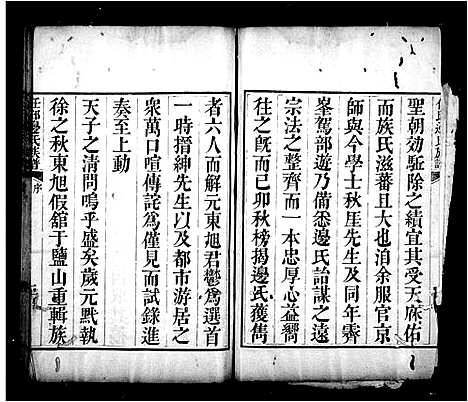 聖朝効駈除之績宜其受天庥佑
而族氏滋蕃且大也洎余服官京
師與今學士秋厓先生及同年霽
峯駕部遊乃備悉邊氏詒謀之遠
宗法之整齊而一本忠厚心益嚮
往之旣占己卯秋榜揭邊氏獲雋
者六人而解元東旭君鬱爲選首
一時搢紳先生以及都市游居之
衆萬口喧傳詫爲僅見而試錄進
奏至上動
天子之清問嗚乎盛矣歲元黓執
徐之秋東旭假舘于鹽山重輯族
任邱邊氏族譜
序